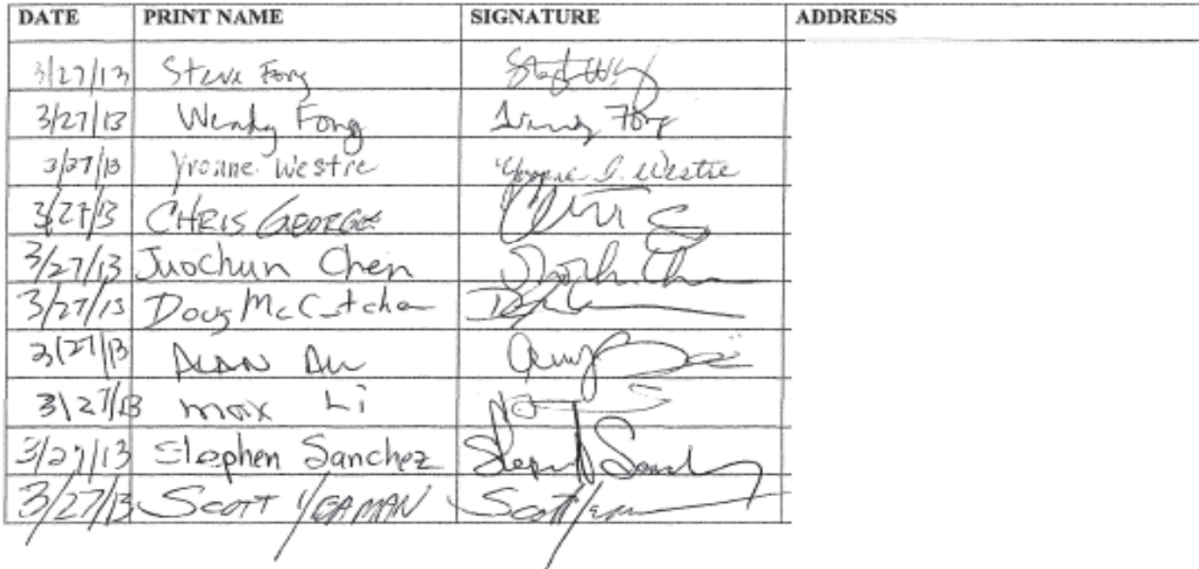 DATE PRINT NAME SIGNATURE ADDRESS
3/27/13 Steve Fong
3/27/13 Wendy Fong Wendy Fong
3/27/13 Yvonne Westre Yvonne S. Westre
3/27/13 CHRIS GEORGE
3/27/13 Juochun Chen
3/27/13 Doug McCutchan
3/27/13 ALAN AU
3/27/13 max Li
3/27/13 Stephen Sanchez Stephen Sanchez
3/27/13 SCOTT YEAMAN Scott